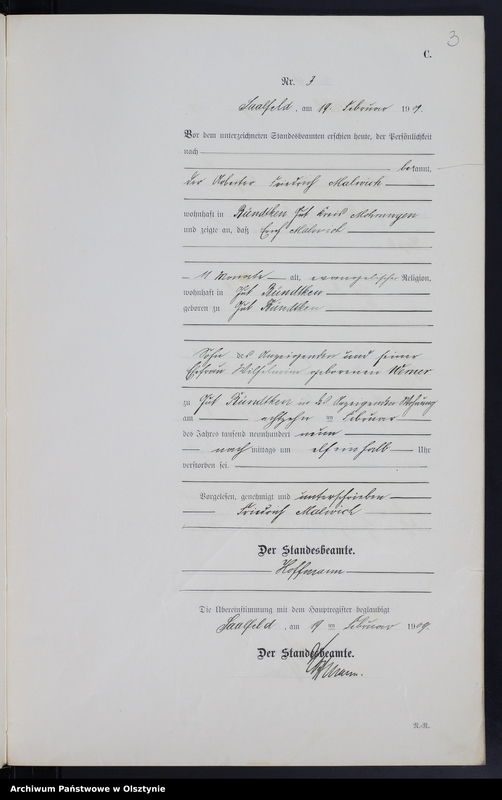 3
C.
Nr. 3
Saalfeld, am 19. Februar 1909.
Vor dem unterzeichneten Standesbeamten erschien heute, der Persönlichkeit
nach
bekannt,
der Arbeiter Friedrich Malwich
wohnhaft in Kündtken Gut Kreis Mohrungen
und zeigte an, daß Erich Malwich
11 Monate alt, evangelischer Religion,
wohnhaft in Gut Kündtken
geboren zu Gut Kündtken
Sohn des Anzeigenden und seiner
Ehefrau Wilhelmine geborenen Werner
zu Gut Kündtken in des Anzeigenden Wohnung
am achtzehn ten Februar
des Jahres tausend neunhundert neun
nachmittags um elfeinhalb Uhr
verstorben sei.
Vorgelesen, genehmigt und unterschrieben
Friedrich Malwich
Der Standesbeamte.
Hoffmann
Die Übereinstimmung mit dem Hauptregister beglaubigt
Saalfeld, am 19 ten Februar 1909.
Der Standesbeamte.
R.-R.
Archiwum Państwowe w Olsztynie